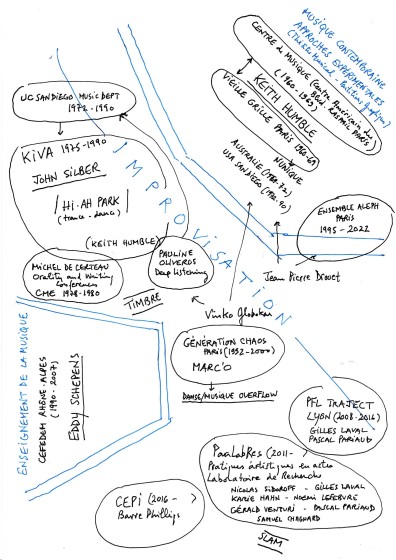 MUSIQUE CONTEMPORAINE
APPROCHES EXPÉRIMENTALES
CENTRE de MUSIQUE (Centre Américain du
Blvd. RASPAIL PARIS)
(1960-1968)
KEITH HUMBLE
VIEILLE GRILLE PARIS
AUSTRALIE (1972-72)
NUNIQUE
USA SAN DIEGO (1982-90)
UC SAN DIEGO MUSIC DEPT
1972-1990
KIVA 1975-1990
JOHN SILBER
/HI-AH PARK/
(trance-dance)
(KEITH HUMBLE)
IMPROVISATION
ENSEMBLE ALEPH
PARIS
1995-2022
PAULINE
OLIVEROS
Deep Listening
MICHEL DE CERTEAU
Orality and Writing
Conferences
CME 1978-1980
TIMBRE
Jean Pierre Drouet
Vinko Globokar
GÉNÉRATION CHAOS
MARC'O
DANSE/MUSIQUE OVERFLOW
ENSEIGNEMENT DE LA MUSIQUE
CEFEDEM RHÔNE-ALPES
(1990-2007)
EDDY SCHEPENS
PFL TRAJECT
LYON (2008-2016)
GILLES LAVAL
PASCAL PARIAUD
PaaLabRes (2011-
Pratiques artistiques en actes
Laboratoire de Recherche
NICOLAS SIDOROFF - GILLES LAVAL
KARINE HAHN - NOEMI LEFEBVRE
GÉRALD VENTURI - PASCAL PARIAUD
SAMUEL CHAGNARD
SLAM
CEPI (2016-
Barre Phillips